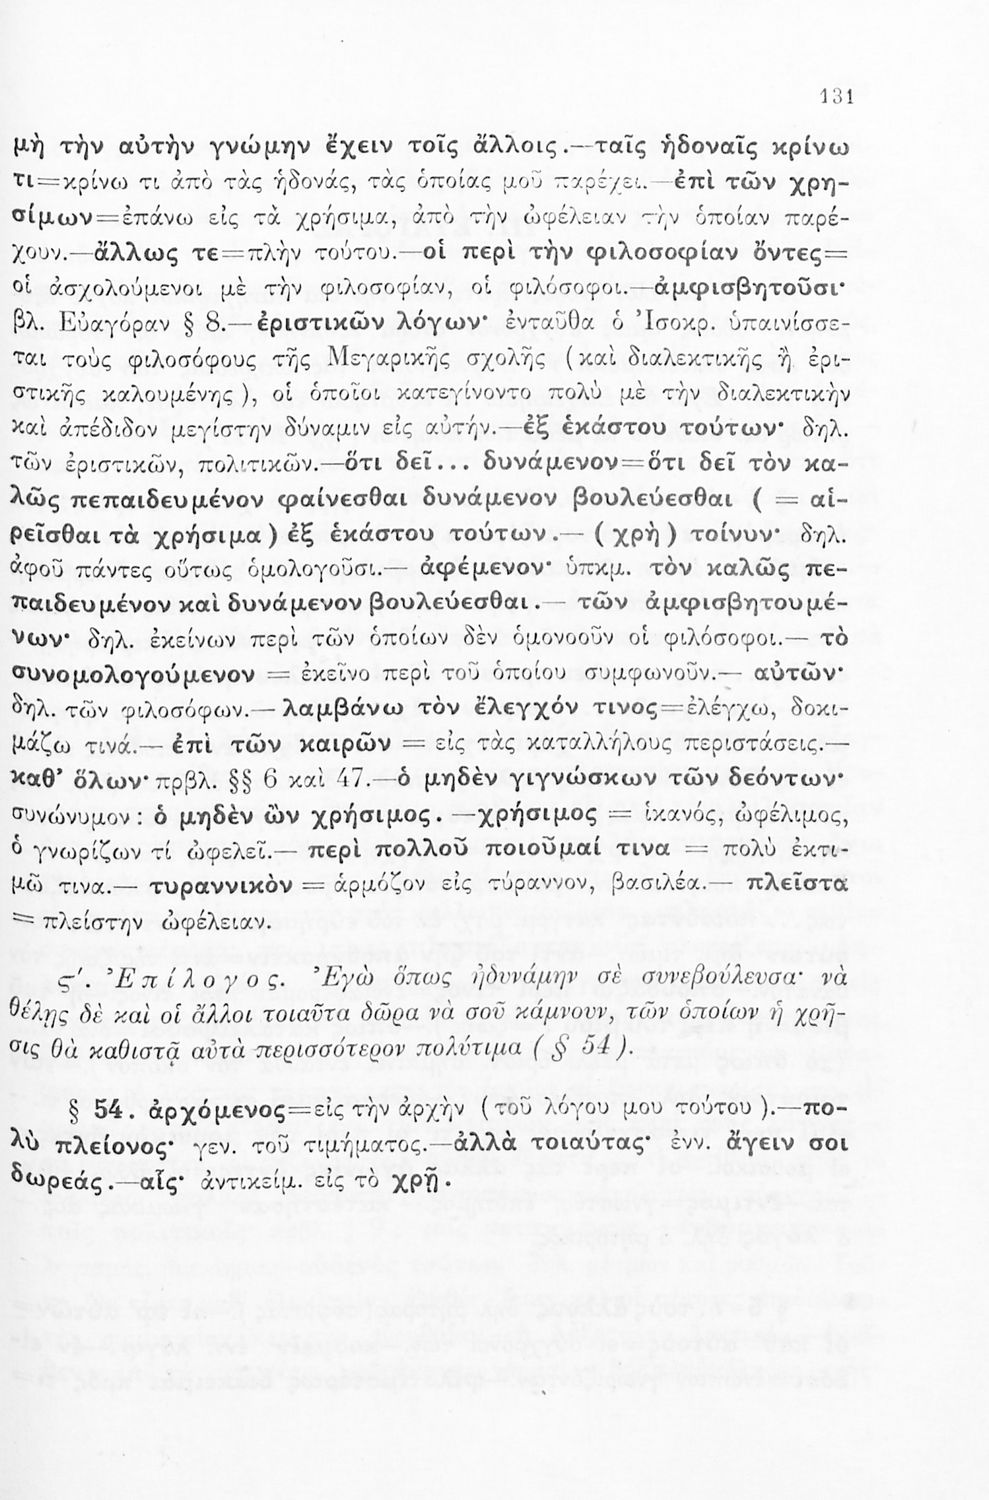 131
μὴ τὴν αὐτὴν γνώμην ἔχειν τοῖς ἄλλοις.—ταῖς ἡδοναῖς κρίνω
τι=κρίνω τι ἀπὸ τὰς ἡδονάς, τὰς ὁποίας μοῦ παρέχει.—ἐπὶ τῶν χρη-
σίμων=ἐπάνω εἰς τὰ χρήσιμα, ἀπὸ τὴν ὠφέλειαν τὴν ὁποίαν παρέ-
χουν.—ἄλλως τε=πλὴν τούτου.—οἱ περὶ τὴν φιλοσοφίαν ὄντες=
οἱ ἀσχολούμενοι μὲ τὴν φιλοσοφίαν, οἱ φιλόσοφοι.—ἀμφισβητοῦσι·
βλ. Εὐαγόραν § 8.—ἐριστικῶν λόγων· ἐνταῦθα ὁ Ἰσοκρ. ὑπαινίσσε-
ται τοὺς φιλοσόφους τῆς Μεγαρικῆς σχολῆς (καὶ διαλεκτικῆς ἢ ἐρι-
στικῆς καλουμένης), οἱ ὁποῖοι κατεγίνοντο πολὺ μὲ τὴν διαλεκτικὴν
καὶ ἀπέδιδον μεγίστην δύναμιν εἰς αὐτήν.—ἐξ ἑκάστου τούτων· δηλ.
τῶν ἐριστικῶν, πολιτικῶν.—ὅτι δεῖ... δυνάμενον=ὅτι δεῖ τὸν κα-
λῶς πεπαιδευμένον φαίνεσθαι δυνάμενον βουλεύεσθαι ( = αἱ-
ρεῖσθαι τὰ χρήσιμα) ἐξ ἑκάστου τούτων.— (χρὴ) τοίνυν· δηλ.
ἀφοῦ πάντες οὕτως ὁμολογοῦσι.— ἀφέμενον· ὑπκμ. τὸν καλῶς πε-
παιδευμένον καὶ δυνάμενον βουλεύεσθαι.— τῶν ἀμφισβητουμέ-
νων· δηλ. ἐκείνων περὶ τῶν ὁποίων δὲν ὁμονοοῦν οἱ φιλόσοφοι.— τὸ
συνομολογούμενον = ἐκεῖνο περὶ τοῦ ὁποίου συμφωνοῦν.— αὐτῶν·
δηλ. τῶν φιλοσόφων.— λαμβάνω τὸν ἔλεγχόν τινος=ἐλέγχω, δοκι-
μάζω τινά.— ἐπὶ τῶν καιρῶν = εἰς τὰς καταλλήλους περιστάσεις.—
καθ' ὅλων· πρβλ. §§ 6 καὶ 47.—ὁ μηδὲν γιγνώσκων τῶν δεόντων·
συνώνυμον: ὁ μηδὲν ὢν χρήσιμος. —χρήσιμος = ἱκανός, ὠφέλιμος,
ὁ γνωρίζων τί ὠφελεῖ.— περὶ πολλοῦ ποιοῦμαί τινα = πολὺ ἐκτι-
μῶ τινα.— τυραννικὸν = ἁρμόζον εἰς τύραννον, βασιλέα.— πλεῖστα
= πλείστην ὠφέλειαν.
ϛ'. Ἐπίλογος. Ἐγὼ ὅπως ἠδυνάμην σὲ συνεβούλευσα· νὰ
θέλῃς δὲ καὶ οἱ ἄλλοι τοιαῦτα δῶρα νὰ σοῦ κάμνουν, τῶν ὁποίων ἡ χρῆ-
σις θὰ καθιστᾷ αὐτὰ περισσότερον πολύτιμα (§ 54).
§ 54. ἀρχόμενος=εἰς τὴν ἀρχὴν (τοῦ λόγου μου τούτου).—πο-
λὺ πλείονος· γεν. τοῦ τιμήματος.—ἀλλὰ τοιαύτας· ἐνν. ἄγειν σοι
δωρεάς.—αἷς· ἀντικείμ. εἰς τὸ χρῇ.